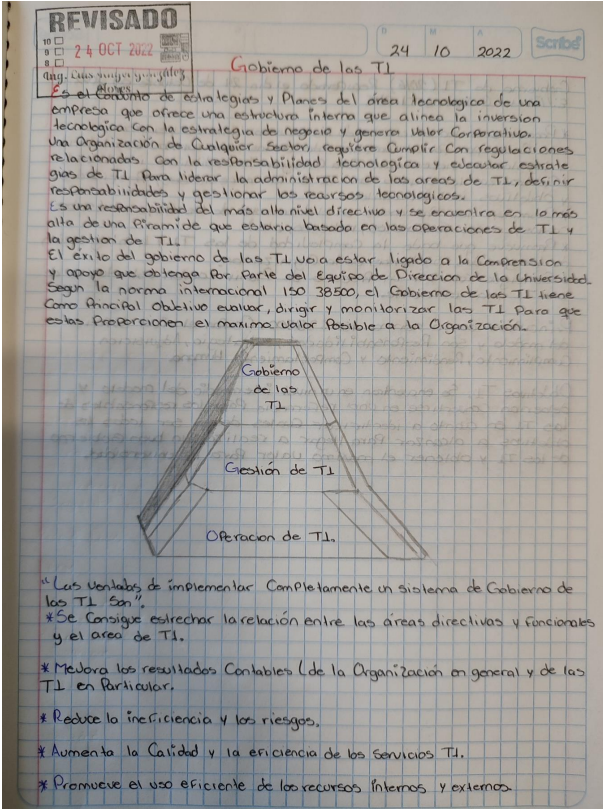 REVISADO
10
9
8
24 OCT 2022
D M A
24 10 2022
Scribe
Gobierno de las TI
Es el Conjunto de estrategias y Planes del área tecnologica de una
empresa que ofrece una estructura interna que alinea la inversion
tecnologica con la estrategia de negocio y genera valor Corporativo.
Una Organización de Cualquier Sector, requiere Cumplir Con regulaciones
relacionadas con la responsabilidad tecnologica y ejecutar estrate
gias de TI Para liderar la administracion de las areas de TI, definir
responsabilidades y gestionar los recursos tecnologicos.
Es una responsabilidad del más alto nivel directivo y se encuentra en lo más
alto de una Piramide que estaria basado en las operaciones de TI y
la gestion de TI.
El éxito del gobierno de las TI va a estar ligado a la Comprension
y apoyo que obtenga Por Parte del Equipo de Direccion de la Universidad.
Segun la norma internacional ISO 38500, el Gobierno de las TI tiene
Como Principal Objetivo evaluar, dirigir y monitorizar las TI Para que
estas Proporcionen el maximo valor Posible a la Organización.
Gobierno
de las
TI
Gestión de TI
Operacion de TI.
"Las ventajas de implementar Completamente un sistema de Gobierno de
las TI Son".
*Se Consigue estrechar la relación entre las áreas directivas y funcionales
y el area de TI.
* Mejora los resultados Contables (de la Organización en general y de las
TI en Particular.
* Reduce la ineficiencia y los riesgos.
* Aumenta la Calidad y la eficiencia de los Servicios TI.
* Promueve el uso eficiente de los recursos internos y externos.